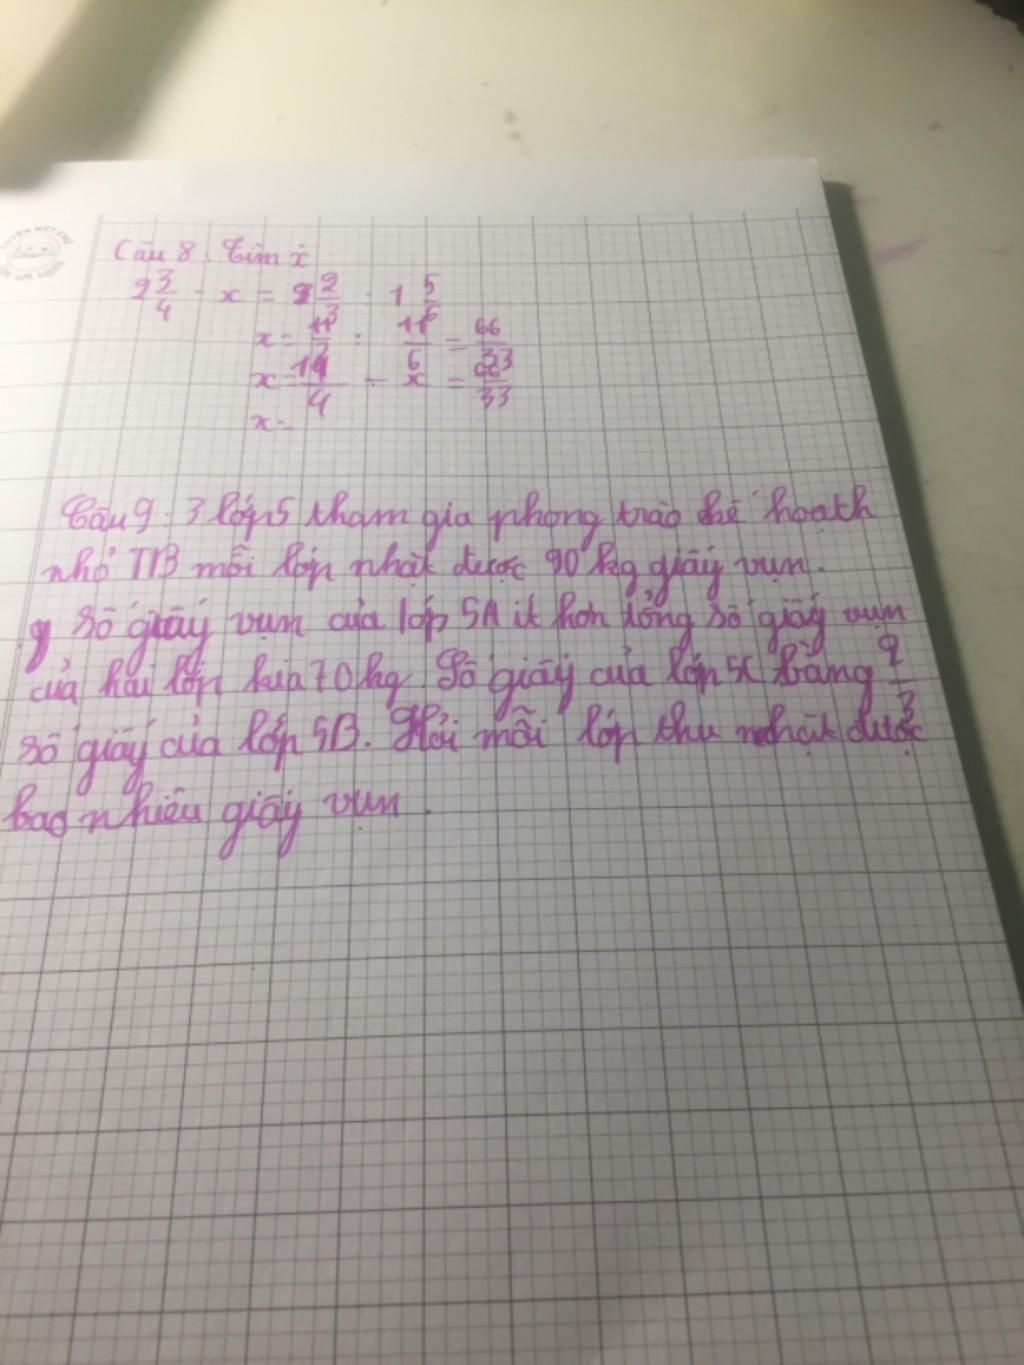 Câu 8. Tìm x
2 3/4 - x = 2 2/3 : 1 5/6
x = 11/3 : 11/6 = 66/33
x = 11/4 - x = 66/33
x =
Câu 9: 3 lớp 5 tham gia phong trào kế hoạch
nhỏ TB mỗi lớp nhặt được 90 kg giấy vụn.
Số giấy vụn của lớp 5A ít hơn tổng số giấy vụn
của hai lớp kia 70kg. Số giấy của lớp 5C bằng 2/3
số giấy của lớp 5B. Hỏi mỗi lớp thu nhặt được
bao nhiêu giấy vụn.